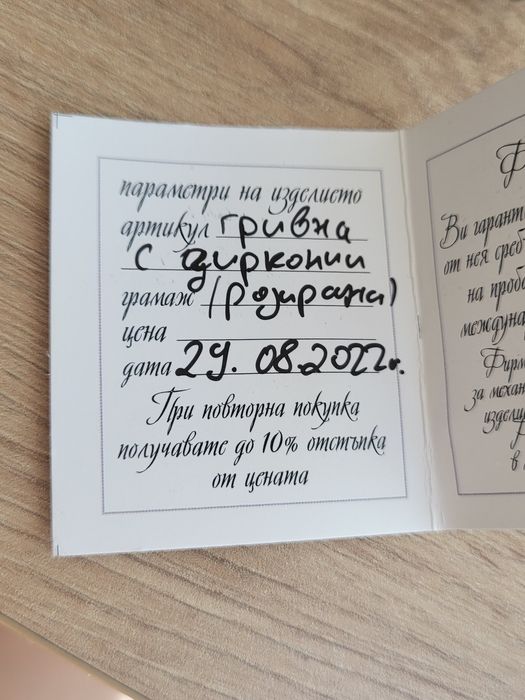 параметри на изделието
артикул гривна
с циркони
грамаж (родирани)
цена
дата 29.08.2022г.
При повторна покупка
получавате до 10% отстъпка
от цената
Ви гарант
от нея среб
на проб
междуна
Фирм
за механ
издели
в